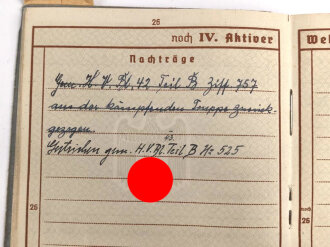 26
noch IV. Aktiver
Wel
Nachträge
Gem. H. V. Bl. 42 Teil B Ziff 757
aus der kämpfenden Truppe zurück-
gezogen.
Gestrichen gem. H.V.Bl. 43 Teil B Nr 525
26
noch
26